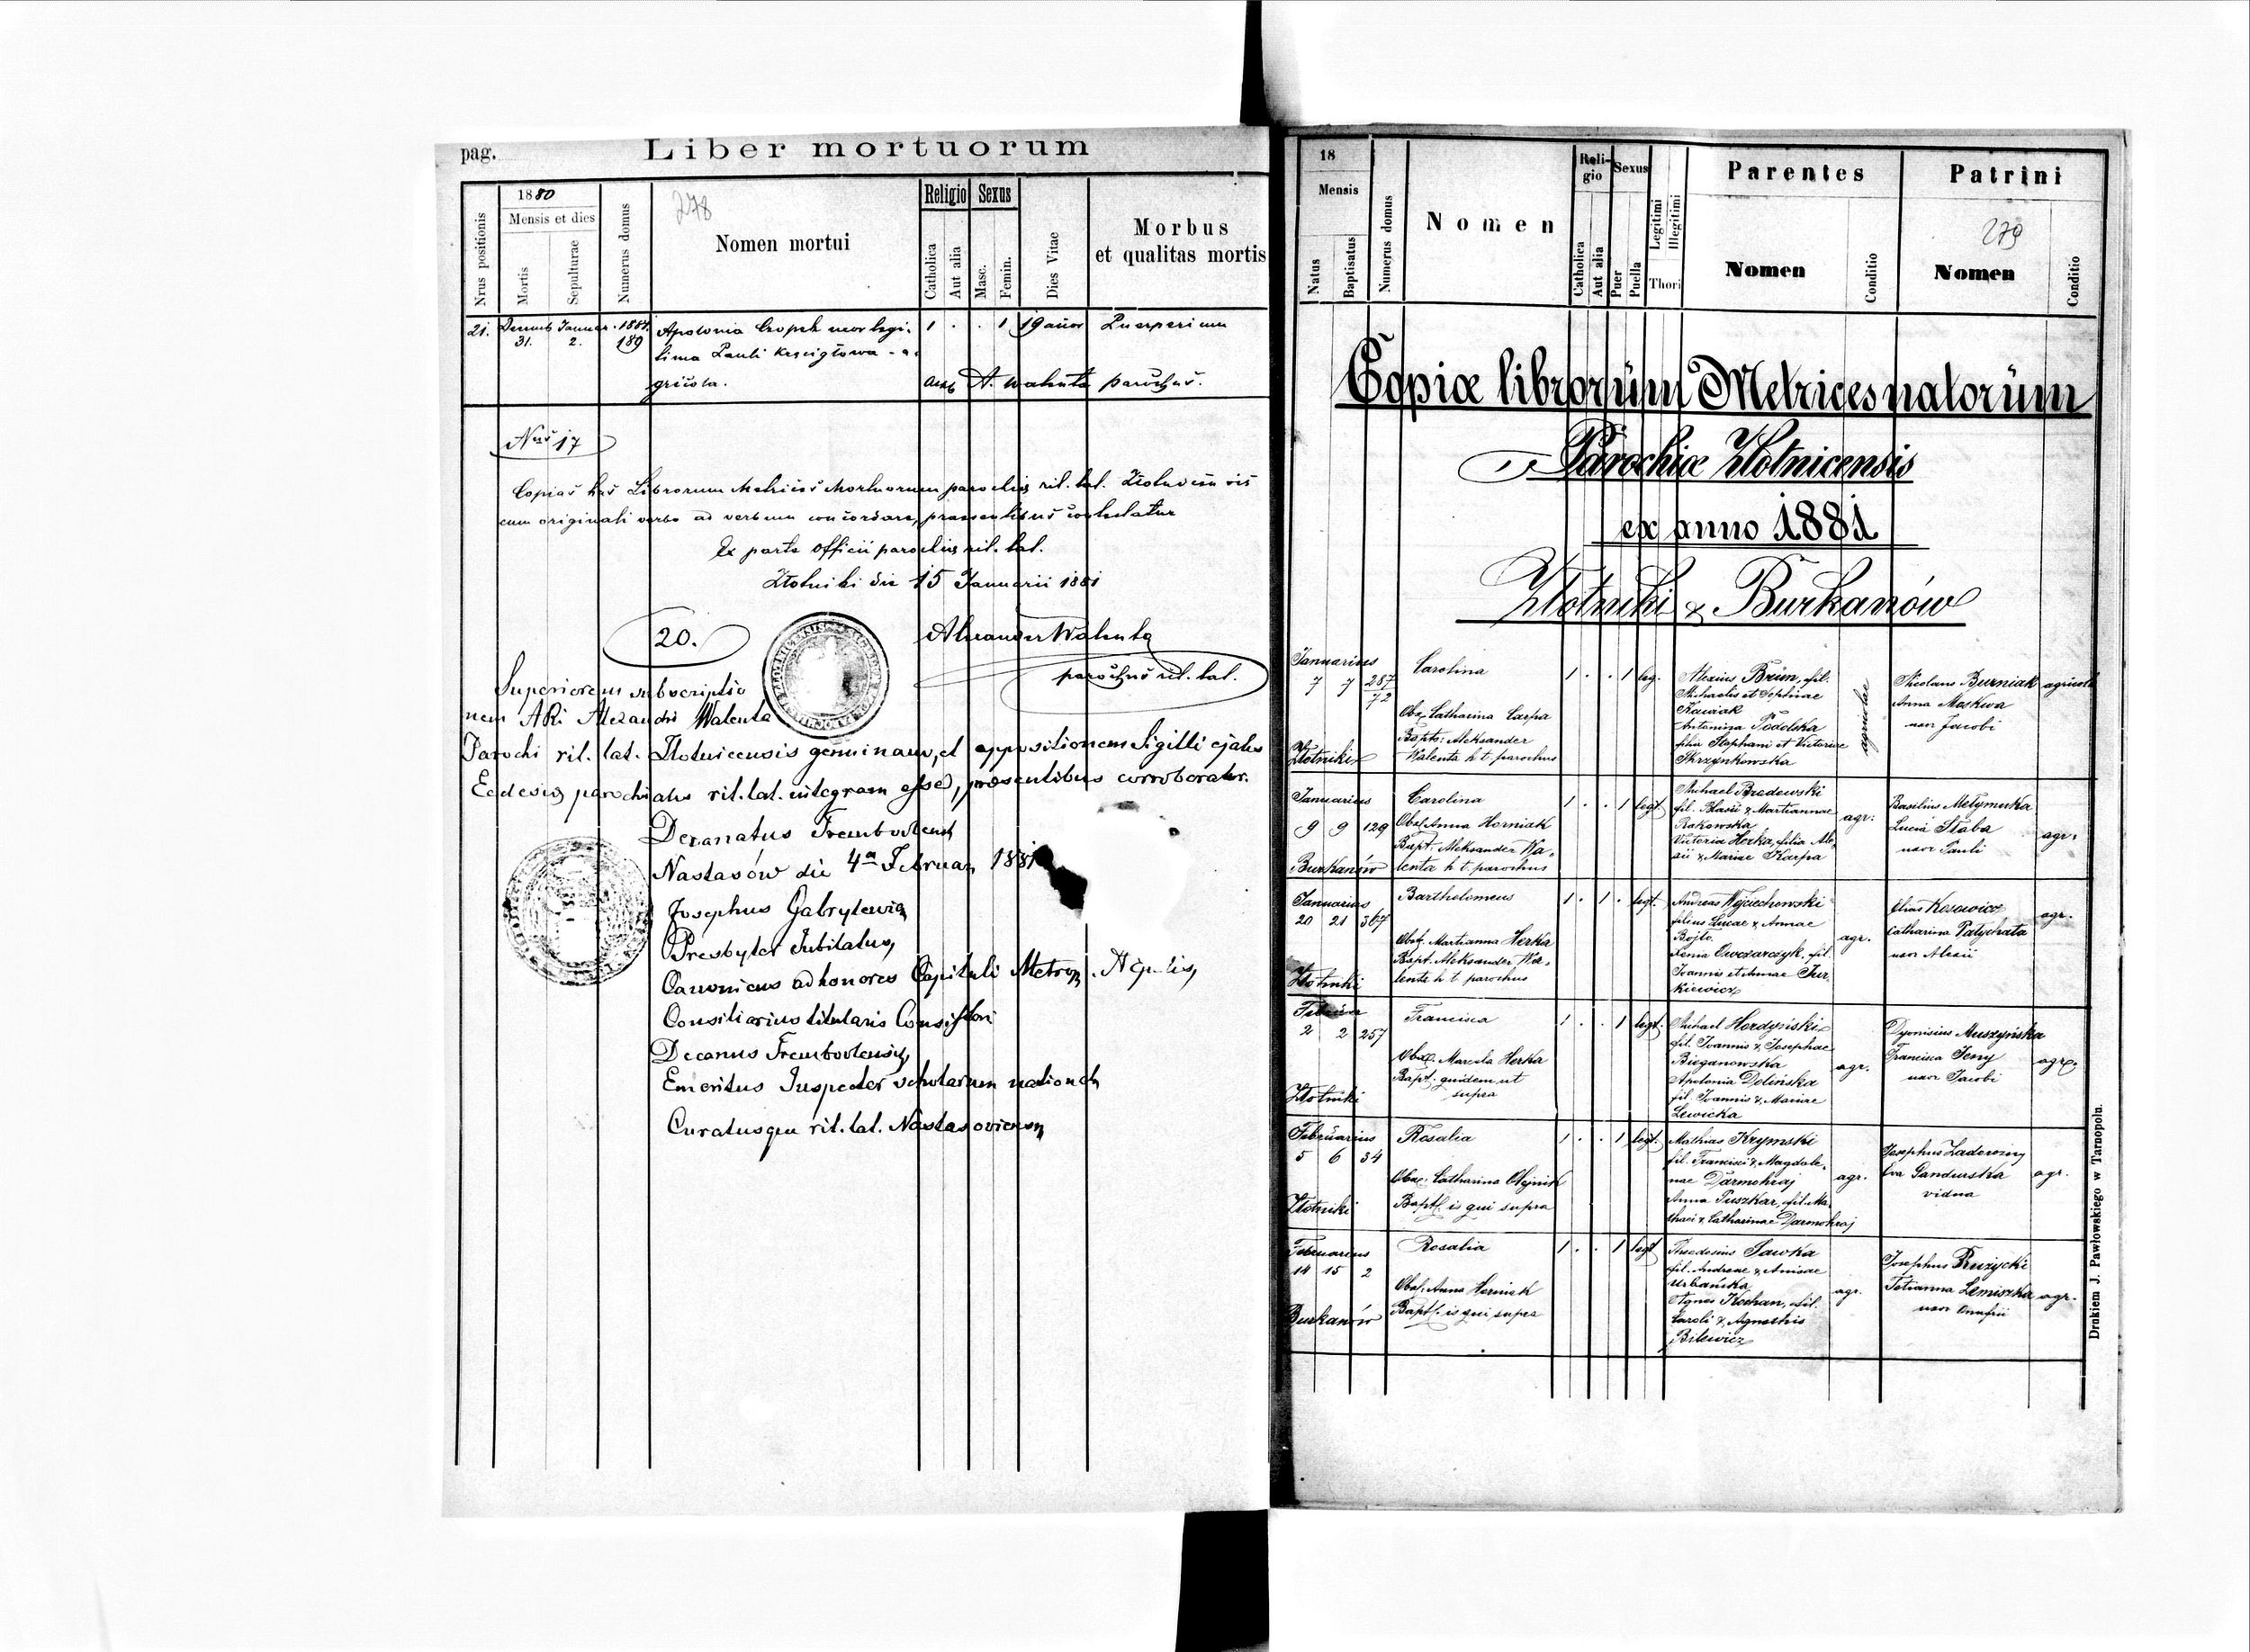 pag.
Liber mortuorum
Nrus positionis
1880
Mensis et dies
Mortis
Sepulturae
Numerus domus
278
Nomen mortui
Religio
Catholica
Aut alia
Sexus
Masc.
Femin.
Dies Vitae
Morbus
et qualitas mortis
21. 31. 2. 189 Apolonia uxor legi-
tima Pauli - a-
gricola.
1 . . 1 19 Puerperium
A. Walenta parochus.
Nus 17
Copias has Librorum Metrices Mortuorum parochiæ rit. lat.
cum originali verbo ad verbum concordare, praesentibus contestatur
Ex parte officii parochiæ rit. lat.
Złotniki die 15 Januarii 1881
20.
Alexander Walenta
parochus rit. lat.
Superiorem subscriptio
nem ARi Alexandri Walenta
Parochi rit. lat. Złotnicensis genuinam, et appositionem Sigilli ejus
Ecclesiæ parochialis rit. lat. integram esse, præsentibus corroboratur.
Decanatus
Nastasów die 4ta Februar. 1881
Josephus Gabrylewicz
Presbyter Jubilatus,
Canonicus ad honores Capituli Metrop.
Consiliarius titularis
Decanus
Emeritus Inspector scholarum
Curatusque rit. lat.
18
Mensis
Natus
Baptisatus
Numerus domus
Nomen
Reli-
gio
Catholica
Aut alia
Sexus
Puer
Puella
Legitimi
Illegitimi
Thori
Parentes
Nomen
Conditio
Patrini
279
Nomen
Conditio
Copiæ librorum Metrices natorum
Parochiæ Złotnicensis
ex anno 1881
Złotniki & Burkanów
Januarius
7 7 287
72
Złotniki
Carolina
Obst. Catharina Carpa
Bapts: Aleksander
Walenta h t. parochus
1 . . 1 leg.
Alexius Brüm, fil.
Michaelis et Sophinae
Kawiak
Antonina Podolska
filia Stephani et Victoriae
Skrzynkowska
agricolae
Nicolaus Burniak
Anna Moskwa
uxor Jacobi
agricolae
Januarius
9 9 129
Burkanów
Carolina
Obst. Anna Horniak
Bapt. Aleksander Wa-
lenta h t. parochus
1 . . 1 legt.
Michael Bradowski
fil. Blasii & Martiannae
Rakowska
Victoria Herka, filia Ale-
xii & Mariae Karpa
agr:
Basilius Metymutka
Lucia Staba
uxor Pauli
agr.
Januarius
20 21 367
Złotniki
Bartholomeus
Obst. Martianna Herka
Bapt. Aleksander Wa-
lenta h t. parochus
1 . 1 . legt.
Andreas Wojciechowski
filius Lucae & Annae
Bojto.
Xenia Owczarczyk, fil.
Joannis et Annae Jur-
kiewicz
agr.
Elias Kosowicz
Catharina Patychata
uxor Alexii
agr.
2 2 257
Złotniki
Francisca
Obst. Marcela Herka
Bapt. quidem ut
supra
1 . . 1 legt.
Michael Hordyński
fil. Joannis & Josephae
Bieganowska
Apolonia Dolińska
fil. Joannis & Mariae
Lewicka
agr.
Dyonisius Muszyńska
Francisca Jerry
uxor Jacobi
agr.
Februarius
5 6 34
Złotniki
Rosalia
Obst. Catharina Olejnik
Bapt. is qui supra
1 . . 1 legt.
Mathias Krymski
fil. Francisci & Magdale-
nae Darmohraj
Anna Puszkar, fil. Ma-
thaei & Catharinae Darmohraj
agr.
Josephus
Eva Gandurska
vidua
agr.
Februarius
14 15 2
Burkanów
Rosalia
Obst. Anna Horniak
Bapt. is qui supra
1 . . 1 legt
Theodosius Sawka
fil. Andreae & Anisae
Urbańska
Agnes Kochan, fil.
Caroli & Agnethis
Bilewicz
agr.
Josephus Ruzycki
Tetianna Lemiszka
uxor Onufrii
agr.
Drukiem J. Pawłowskiego w Tarnopolu.